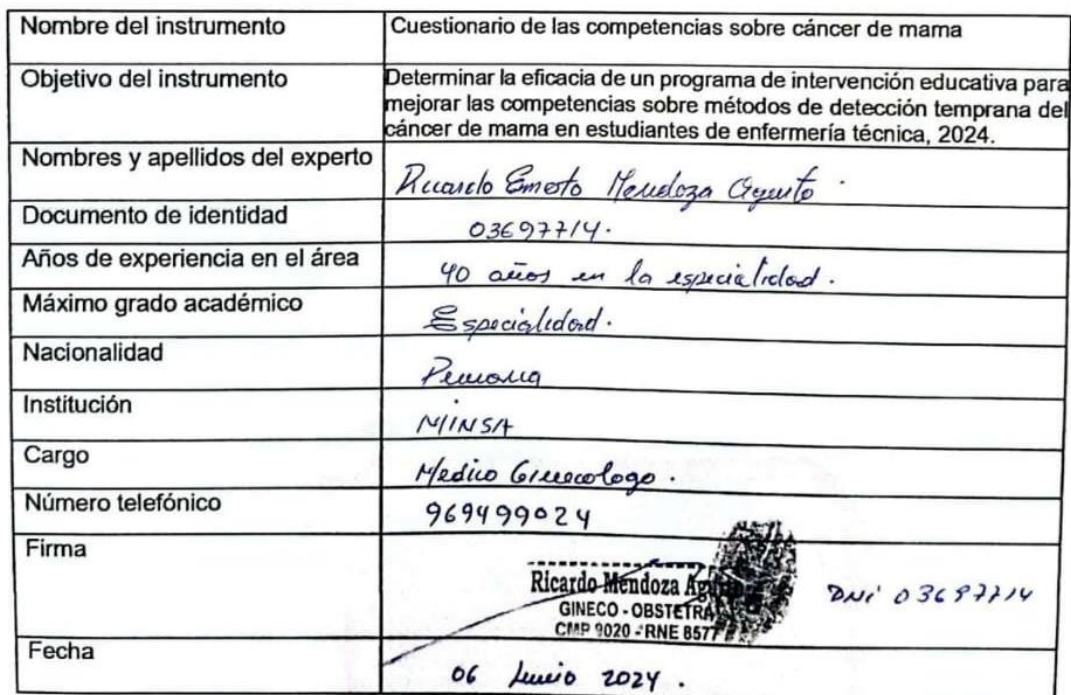 Nombre del instrumento
Cuestionario de las competencias sobre cáncer de mama
Objetivo del instrumento
Determinar la eficacia de un programa de intervención educativa para
mejorar las competencias sobre métodos de detección temprana del
cáncer de mama en estudiantes de enfermería técnica, 2024.
Nombres y apellidos del experto
Ricardo Ernesto Mendoza
Documento de identidad
03697714.
Años de experiencia en el área
40 años en la especialidad.
Máximo grado académico
Especialidad.
Nacionalidad
Peruana
Institución
MINSA
Cargo
Medico Ginecologo.
Número telefónico
969499024
Firma
Ricardo Mendoza
GINECO - OBSTETRA
CMP 9020 - RNE 8577
DNI 03697714
Fecha
06 Junio 2024.